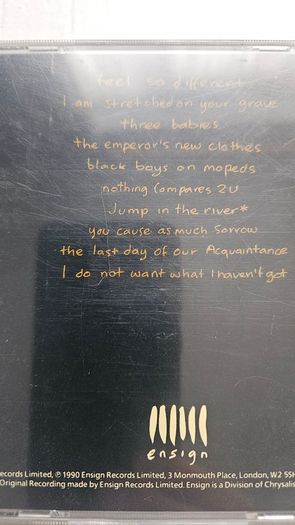 feel so different
I am stretched on your grave
three babies
the emperor's new clothes
black boys on mopeds
nothing Compares 2U
Jump in the river*
you cause as much Sorrow
the last day of our Acquaintance
I do not want what I haven't got
ensign
ecords Limited, ℗ 1990 Ensign Records Limited, 3 Monmouth Place, London, W2 5SH
Original Recording made by Ensign Records Limited. Ensign is a Division of Chrysalis